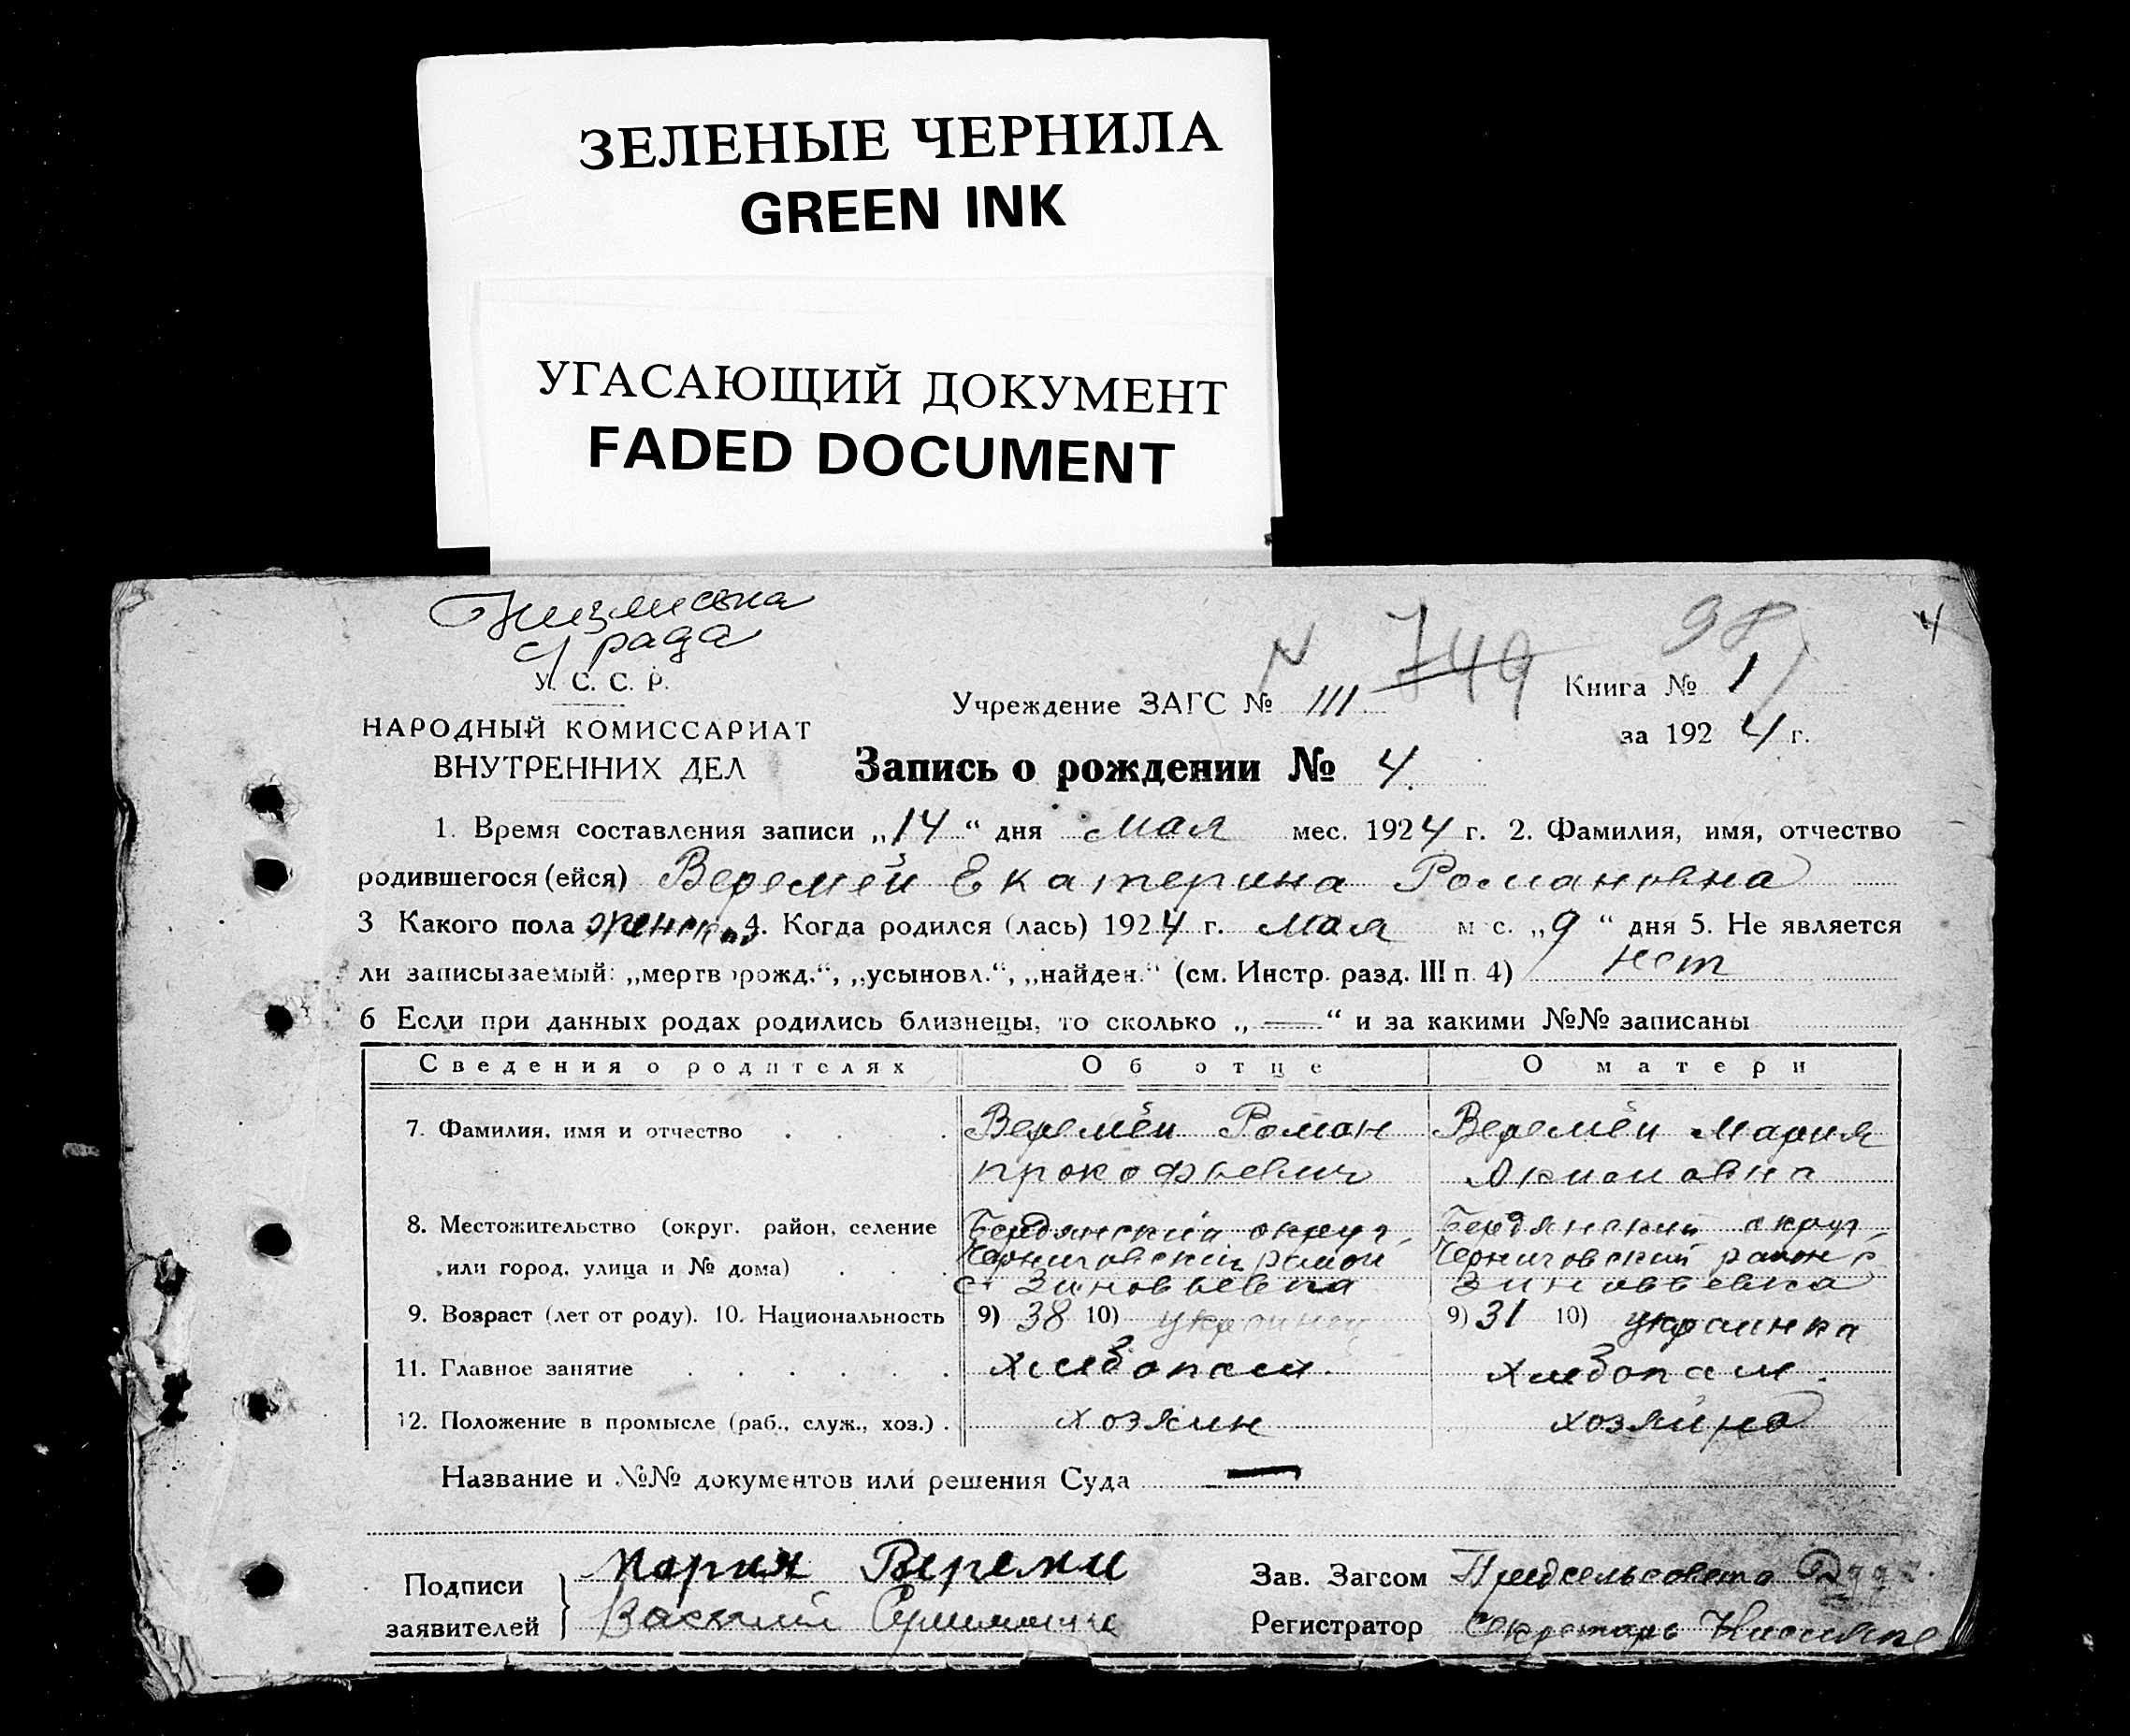 ЗЕЛЕНЫЕ ЧЕРНИЛА
GREEN INK
УГАСАЮЩИЙ ДОКУМЕНТ
FADED DOCUMENT
с/ рада
4
98
N 749
У. С. С. Р.
НАРОДНЫЙ КОМИССАРИАТ
ВНУТРЕННИХ ДЕЛ
Учреждение ЗАГС № III
Книга № 1
за 1924 г.
Запись о рождении № 4.
1. Время составления записи „14“ дня мая мес. 1924 г. 2. Фамилия, имя, отчество
родившегося (ейся) Веремей Екатерина Романовна
3 Какого пола женск 4. Когда родился (лась) 1924 г. мая м с. „9“ дня 5. Не является
ли записываемый: „мертворожд.“, „усыновл.“, „найден.“ (см. Инстр. разд. III п. 4) нет
6 Если при данных родах родились близнецы, то сколько „—“ и за какими №№ записаны
Сведения о родителях Об отце О матери
7. Фамилия, имя и отчество Веремей Роман Веремей Мария
прокофьевич Акимовна
8. Местожительство (округ. район, селение Бердянский округ, Бердянский округ,
или город, улица и № дома) Черниговский район Черниговский район с
с. Зиновьевка Зиновьевка
9. Возраст (лет от роду). 10. Национальность 9) 38 10) украинец 9) 31 10) украинка
11. Главное занятие хлебопаш. хлебопаш.
12. Положение в промысле (раб., служ., хоз.) хозяин хозяйка
Название и №№ документов или решения Суда —
Подписи Мария Веремий Зав. Загсом Предсельсовета
заявителей Василий Регистратор Секретарь